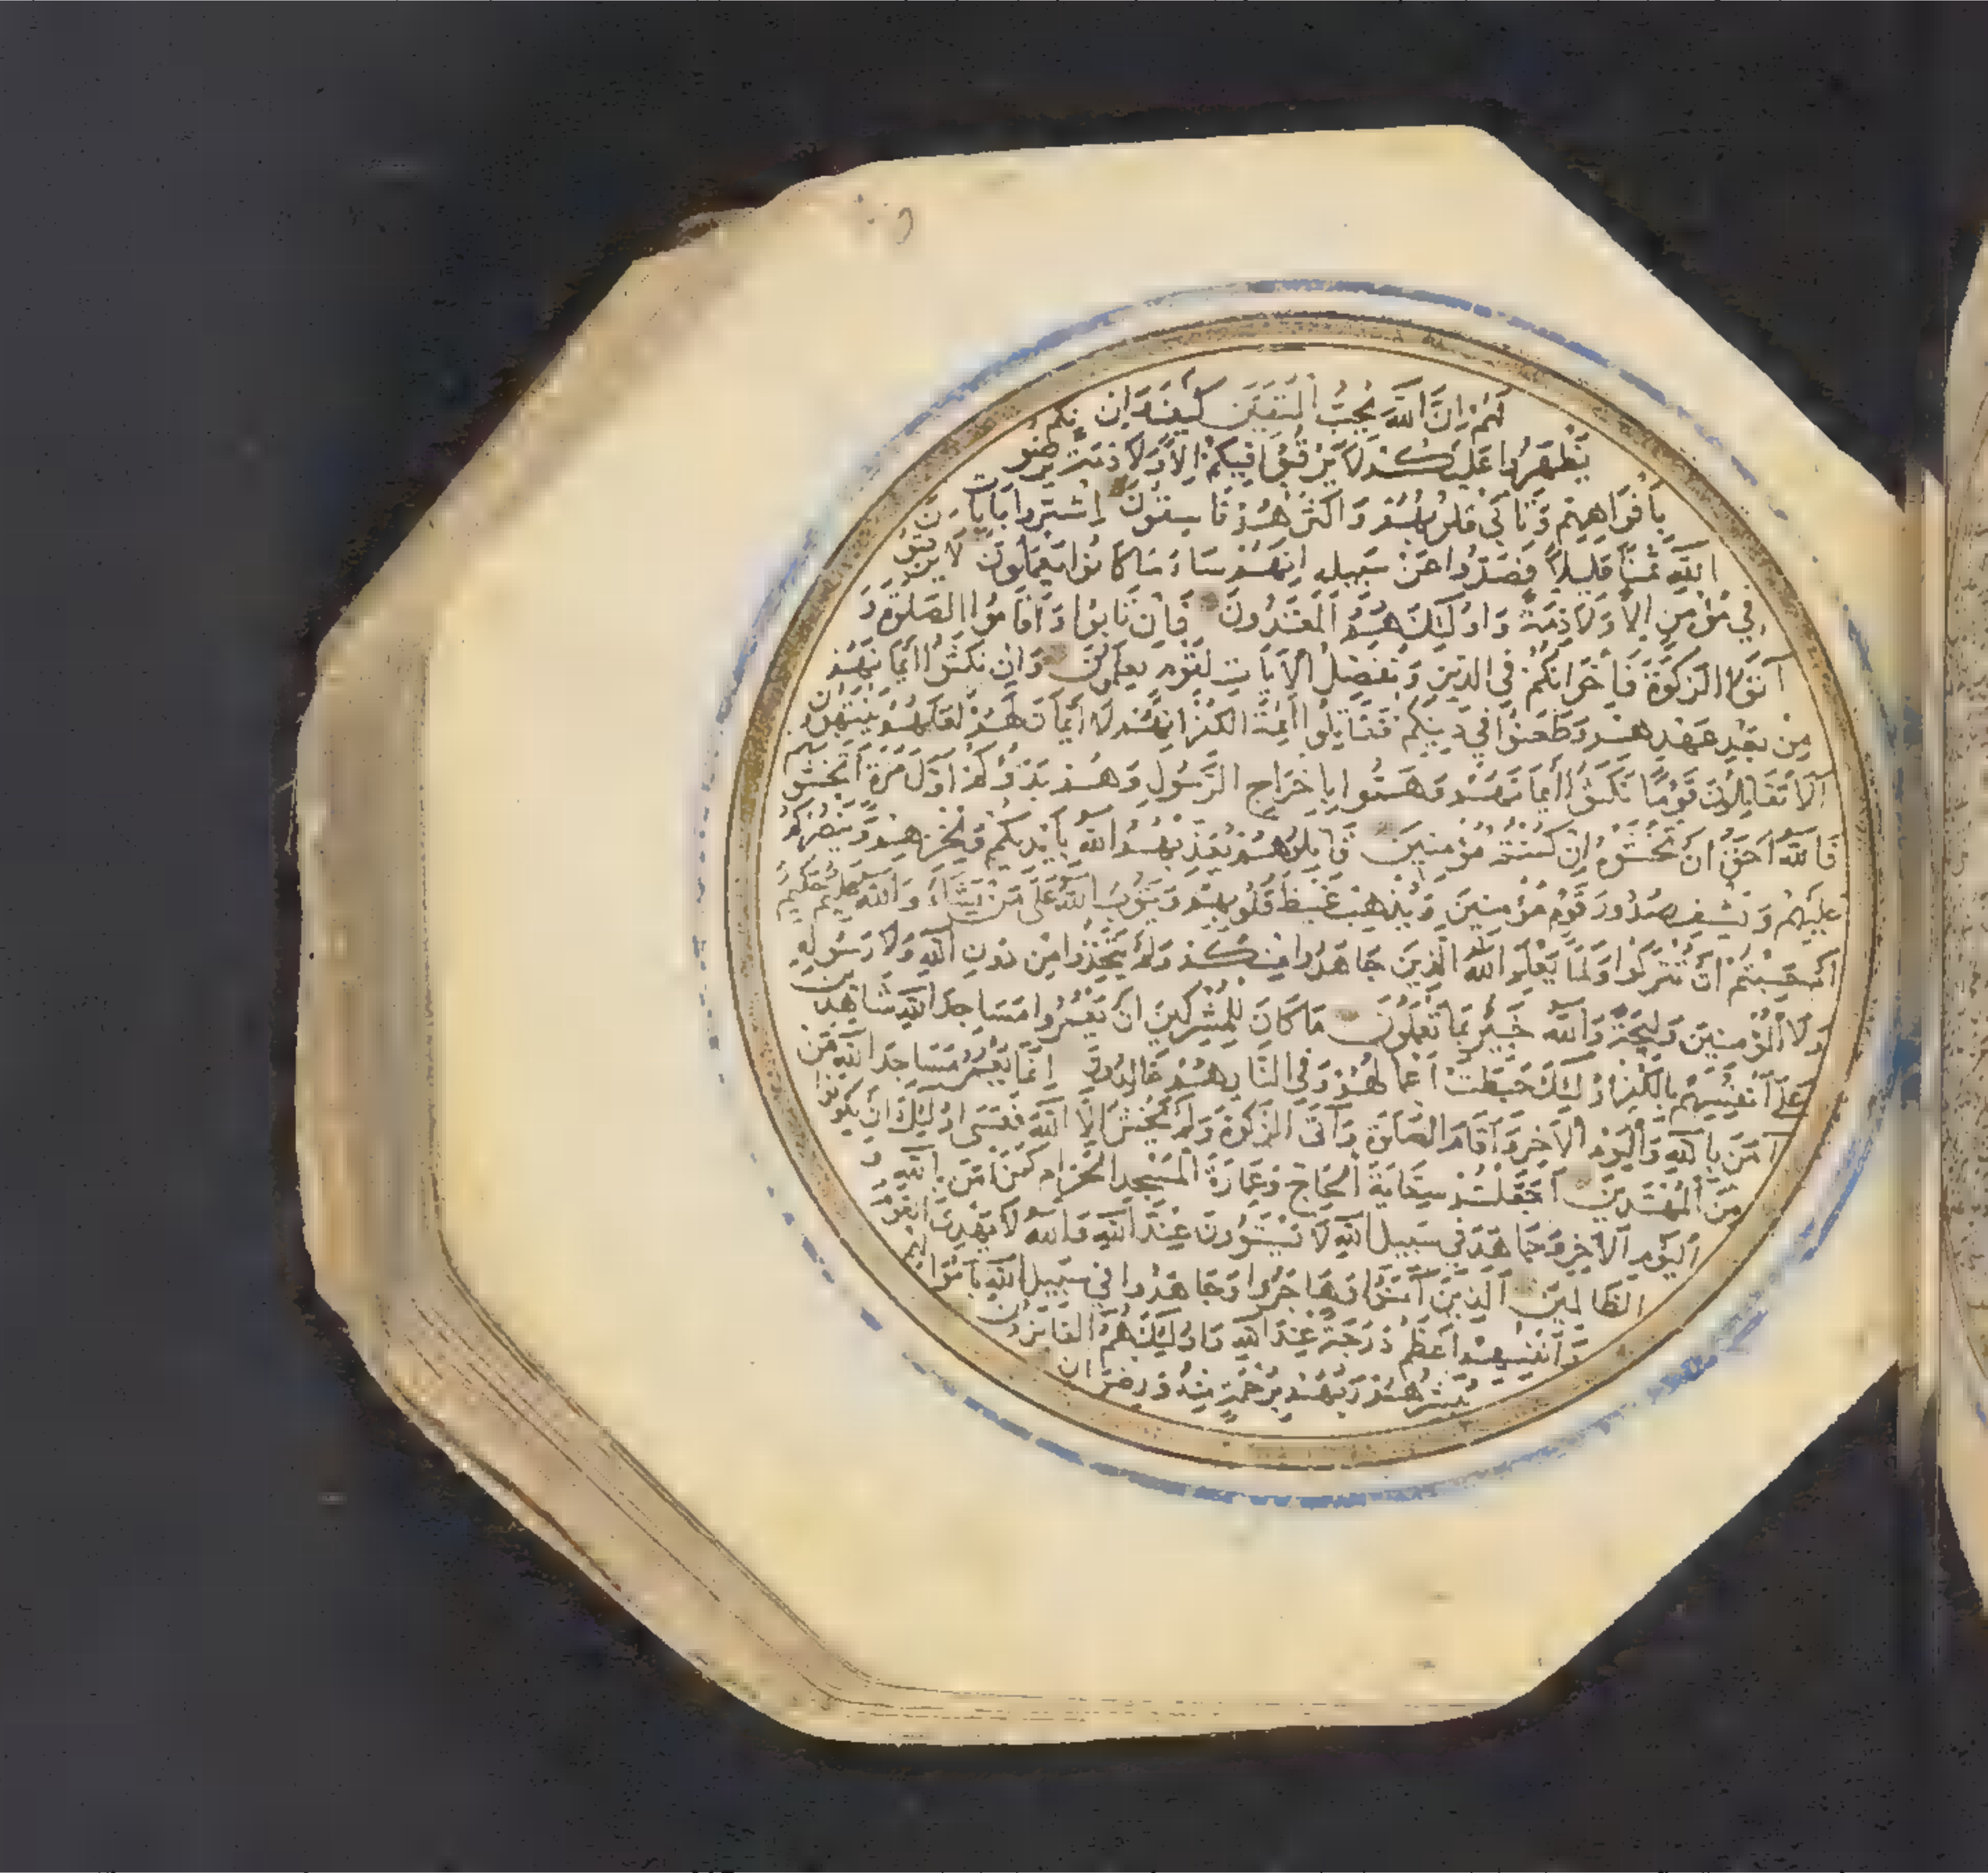 لَهُمْ إِنَّ اللَّهَ يُحِبُّ الْمُتَّقِينَ كَيْفَ وَإِن
يَظْهَرُوا عَلَيْكُمْ لَا يَرْقُبُوا فِيكُمْ إِلًّا وَلَا ذِمَّةً يُرْضُونَكُم
بِأَفْوَاهِهِمْ وَتَأْبَى قُلُوبُهُمْ وَأَكْثَرُهُمْ فَاسِقُونَ اشْتَرَوْا بِآيَاتِ
اللَّهِ ثَمَنًا قَلِيلًا فَصَدُّوا عَنْ سَبِيلِهِ إِنَّهُمْ سَاءَ مَا كَانُوا يَعْمَلُونَ لَا يَرْقُبُونَ
فِي مُؤْمِنٍ إِلًّا وَلَا ذِمَّةً وَأُولَئِكَ هُمُ الْمُعْتَدُونَ فَإِنْ تَابُوا وَأَقَامُوا الصَّلَوةَ وَ
آتَوُا الزَّكَوةَ فَإِخْوَانُكُمْ فِي الدِّينِ وَنُفَصِّلُ الْآيَاتِ لِقَوْمٍ يَعْلَمُونَ وَإِنْ نَكَثُوا أَيْمَانَهُمْ
مِنْ بَعْدِ عَهْدِهِمْ وَطَعَنُوا فِي دِينِكُمْ فَقَاتِلُوا أَئِمَّةَ الْكُفْرِ إِنَّهُمْ لَا أَيْمَانَ لَهُمْ لَعَلَّهُمْ يَنْتَهُونَ
أَلَا تُقَاتِلُونَ قَوْمًا نَكَثُوا أَيْمَانَهُمْ وَهَمُّوا بِإِخْرَاجِ الرَّسُولِ وَهُمْ بَدَؤُكُمْ أَوَّلَ مَرَّةٍ أَتَخْشَوْنَهُمْ
فَاللَّهُ أَحَقُّ أَنْ تَخْشَوْهُ إِنْ كُنْتُمْ مُؤْمِنِينَ قَاتِلُوهُمْ يُعَذِّبْهُمُ اللَّهُ بِأَيْدِيكُمْ وَيُخْزِهِمْ وَيَنْصُرْكُمْ
عَلَيْهِمْ وَيَشْفِ صُدُورَ قَوْمٍ مُؤْمِنِينَ وَيُذْهِبْ غَيْظَ قُلُوبِهِمْ وَيَتُوبُ اللَّهُ عَلَى مَنْ يَشَاءُ وَاللَّهُ عَلِيمٌ حَكِيمٌ
أَمْ حَسِبْتُمْ أَنْ تُتْرَكُوا وَلَمَّا يَعْلَمِ اللَّهُ الَّذِينَ جَاهَدُوا مِنْكُمْ وَلَمْ يَتَّخِذُوا مِنْ دُونِ اللَّهِ وَلَا رَسُولِهِ
وَلَا الْمُؤْمِنِينَ وَلِيجَةً وَاللَّهُ خَبِيرٌ بِمَا تَعْمَلُونَ مَا كَانَ لِلْمُشْرِكِينَ أَنْ يَعْمُرُوا مَسَاجِدَ اللَّهِ شَاهِدِينَ
عَلَى أَنْفُسِهِمْ بِالْكُفْرِ أُولَئِكَ حَبِطَتْ أَعْمَالُهُمْ وَفِي النَّارِ هُمْ خَالِدُونَ إِنَّمَا يَعْمُرُ مَسَاجِدَ اللَّهِ مَنْ
آمَنَ بِاللَّهِ وَالْيَوْمِ الْآخِرِ وَأَقَامَ الصَّلَوةَ وَآتَى الزَّكَوةَ وَلَمْ يَخْشَ إِلَّا اللَّهَ فَعَسَى أُولَئِكَ أَنْ يَكُونُوا
مِنَ الْمُهْتَدِينَ أَجَعَلْتُمْ سِقَايَةَ الْحَاجِّ وَعِمَارَةَ الْمَسْجِدِ الْحَرَامِ كَمَنْ آمَنَ بِاللَّهِ وَ
الْيَوْمِ الْآخِرِ وَجَاهَدَ فِي سَبِيلِ اللَّهِ لَا يَسْتَوُونَ عِنْدَ اللَّهِ وَاللَّهُ لَا يَهْدِي الْقَوْمَ
الظَّالِمِينَ الَّذِينَ آمَنُوا وَهَاجَرُوا وَجَاهَدُوا فِي سَبِيلِ اللَّهِ بِأَمْوَالِهِمْ
وَأَنْفُسِهِمْ أَعْظَمُ دَرَجَةً عِنْدَ اللَّهِ وَأُولَئِكَ هُمُ الْفَائِزُونَ
يُبَشِّرُهُمْ رَبُّهُمْ بِرَحْمَةٍ مِنْهُ وَرِضْوَانٍ